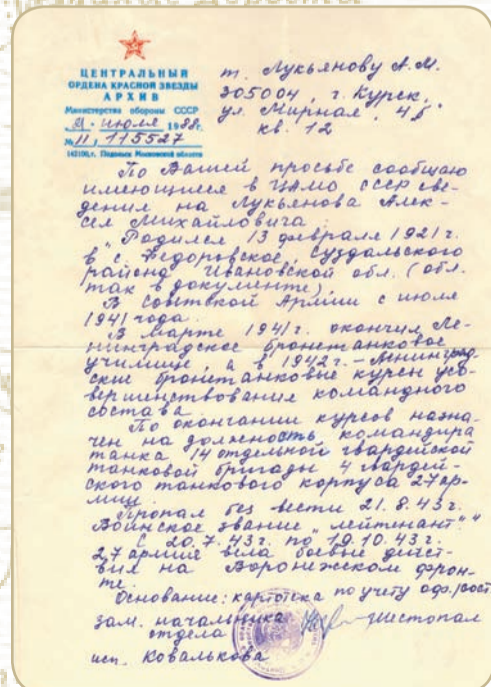 ЦЕНТРАЛЬНЫЙ
ОРДЕНА КРАСНОЙ ЗВЕЗДЫ
АРХИВ
Министерства обороны СССР
21 июля 1988г.
№ 11/115527
142100, г. Подольск Московской области
т. Лукьянову А.М.
305004, г. Курск,
ул. Мирная, 4б
кв. 12
По Вашей просьбе сообщаю
имеющиеся в ЦАМО СССР све-
дения на Лукьянова Алек-
сея Михайловича:
"Родился 13 февраля 1921 г.
в с. Федоровское, Суздальского
района Ивановской обл. (обл.
так в документе).
В Советской Армии с июля
1941 года.
В марте 1941 г. окончил Ле-
нинградское бронетанковое
училище, а в 1942 г. - Ленинград-
ские бронетанковые курсы усо-
вершенствования командного
состава.
По окончании курсов назна-
чен на должность командира
танка 14 отдельной гвардейской
танковой бригады 4 гвардей-
ского танкового корпуса 27 ар-
мии.
Пропал без вести 21.8.43 г.
Воинское звание "лейтенант".
С 20.7.43 г. по 19.10.43 г.
27 армия вела боевые дейст-
вия на Воронежском фрон-
те.
Основание: картотека по учету оф.
зам. начальника
отдела Шестопал
исп. Ковалькова